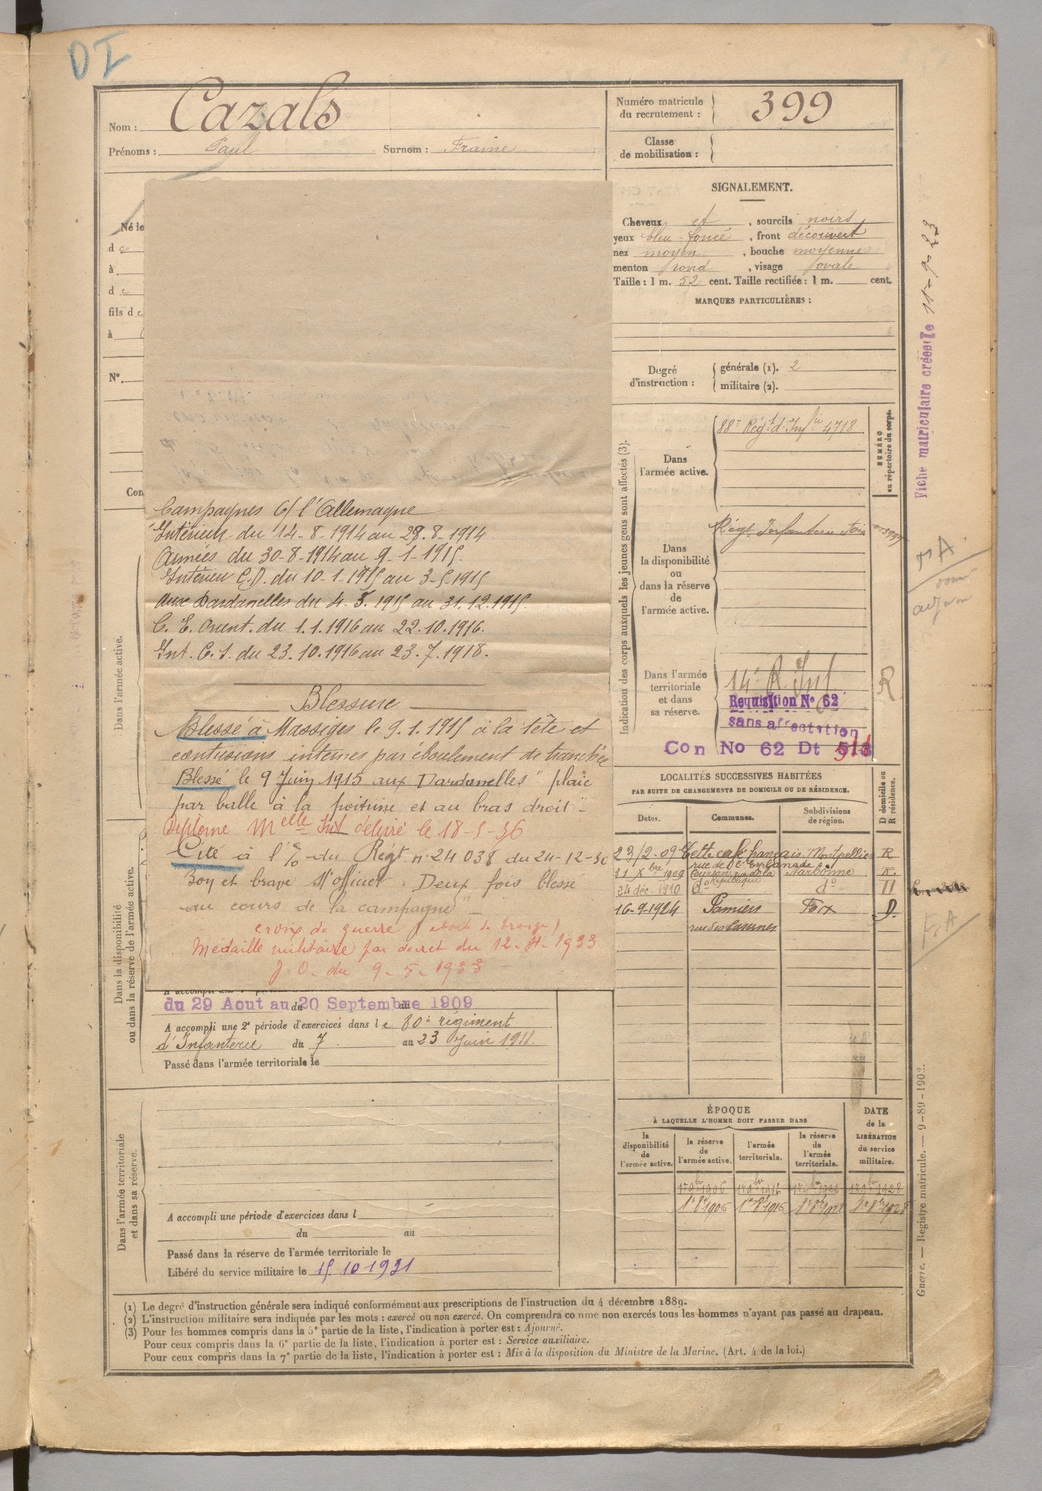 DI
Nom : Cazals
Prénoms : Paul Surnom : Fraine
Numéro matricule du recrutement : 399
Classe de mobilisation :
SIGNALEMENT.
Cheveux et , sourcils noirs
yeux bleu foncé , front découvert
nez moyen , bouche moyenne
menton rond , visage ovale
Taille : 1 m. 52 cent. Taille rectifiée : 1 m. cent.
MARQUES PARTICULIÈRES :
Degré d'instruction : générale (1). 2
militaire (2).
Fiche matriculaire créée le 11-9-23
Né le
d
à
d
fils d
à
N°
Con
Indication des corps auxquels les jeunes gens sont affectés (3).
NUMÉRO au répertoire du corps.
Dans l'armée active.
88e Régt d'Infie 4718
Dans la disponibilité ou dans la réserve de l'armée active.
Régt Infanterie
Dans l'armée territoriale et dans sa réserve.
14e R Inf
Requisition No 62
sans affectation
Con No 62 Dt
R
Campagnes C/ l'Allemagne
Intérieur du 14-8-1914 au 28.8-1914
Armées du 30-8-1914 au 9-1-1915
Intérieur C.D. du 10-1.1915 au 3-5-1915
aux Dardanelles du 4.5.1915 au 31.12.1915.
C. E. Orient. du 1.1.1916 au 22.10.1916.
Int. C. S. du 23.10.1916 au 23.7.1918.
Blessure
Blessé à Massiges le 9.1.1915 à la tête et
contusions internes par éboulement de tranchée
Blessé le 9 Juin 1915 aux Dardanelles "plaie
par balle à la poitrine et au bras droit"
Diplome Melle délivré le 18-5-36
Cité à l' du Régt n° 24038 du 24-12-30
Bon et brave s/officier. Deux fois blessé
au cours de la campagne"
croix de guerre (étoile de bronze)
Médaille militaire par décret du 1933
J.O. du 9-5-1933
Dans l'armée active.
Dans la disponibilité ou dans la réserve de l'armée active.
du 29 Aout au 20 Septembre 1909
A accompli une 2e période d'exercices dans le 80e régiment
d'Infanterie du 7 au 23 Juin 1911.
Passé dans l'armée territoriale le
LOCALITÉS SUCCESSIVES HABITÉES
PAR SUITE DE CHANGEMENTS DE DOMICILE OU DE RÉSIDENCE.
Dates. Communes. Subdivisions de région. D domicile ou R résidence.
23/2-09 Cette Montpellier R
1909 Narbonne R.
24 déc. 1910 do do
16-9-1924 Pamiers Foix D.
rue des
F.A
Dans l'armée territoriale et dans sa réserve.
A accompli une période d'exercices dans l
du au
Passé dans la réserve de l'armée territoriale le
Libéré du service militaire le 15 10 1921
ÉPOQUE
À LAQUELLE L'HOMME DOIT PASSER DANS
la disponibilité de l'armée active.
la réserve de l'armée active.
l'armée territoriale.
la réserve de l'armée territoriale.
DATE de la LIBÉRATION du service militaire.
(1) Le degré d'instruction générale sera indiqué conformément aux prescriptions de l'instruction du 4 décembre 1889.
(2) L'instruction militaire sera indiquée par les mots : exercé ou non exercé. On comprendra comme non exercés tous les hommes n'ayant pas passé au drapeau.
(3) Pour les hommes compris dans la 5e partie de la liste, l'indication à porter est : Ajourné.
Pour ceux compris dans la 6e partie de la liste, l'indication à porter est : Service auxiliaire.
Pour ceux compris dans la 7e partie de la liste, l'indication à porter est : Mis à la disposition du Ministre de la Marine. (Art. 4 de la loi.)
Guerre. — Registre matricule. — 9-89-1902.